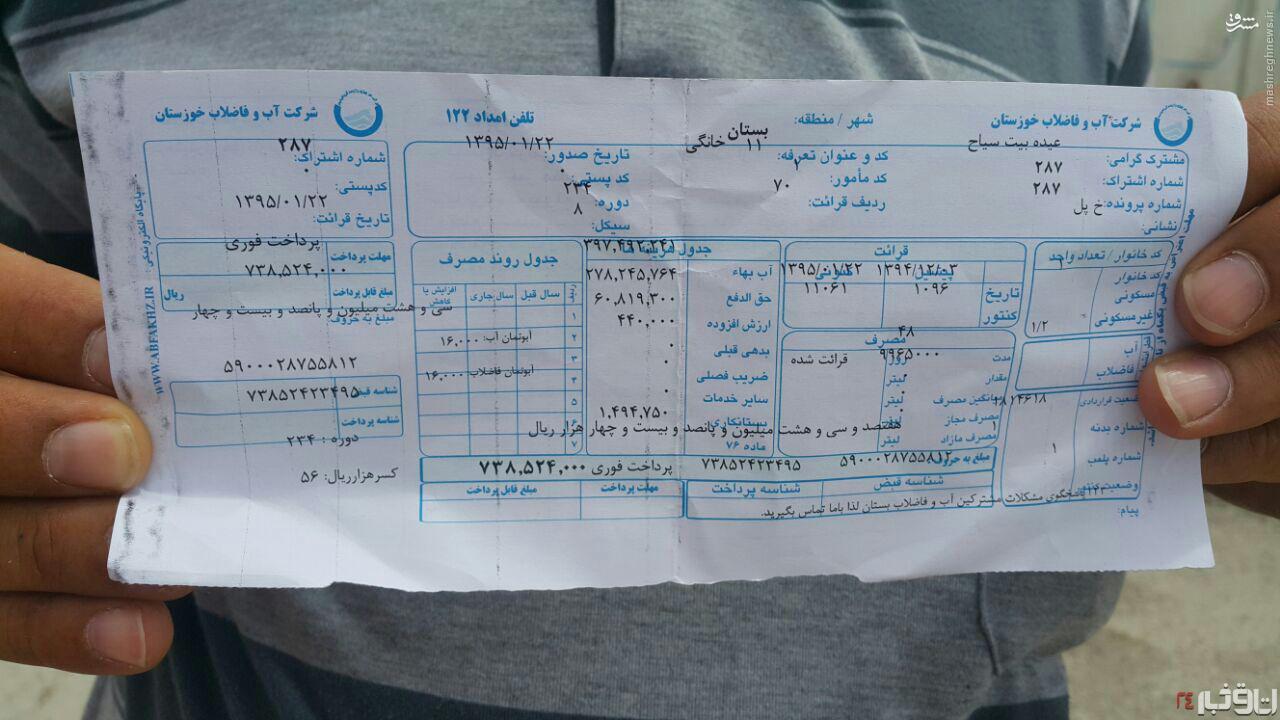 مشرق
mashreghnews.ir
شرکت آب و فاضلاب خوزستان
شهر / منطقه: بستان
تلفن امداد ۱۲۲
مشترک گرامی: عبده بیت سیاح
شماره اشتراک: ۲۸۷
شماره پرونده: ۲۸۷
نشانی: خ پل
کد و عنوان تعرفه: ۱۱ خانگی
کد مأمور: ۲
ردیف قرائت: ۷۰
تاریخ صدور: ۱۳۹۵/۰۱/۲۲
کد پستی: ۰
دوره: ۲۳۴
سیکل: ۸
کد خانوار / تعداد واحد
کد خانوار ۱
مسکونی
غیرمسکونی ۱/۲
آب
فاضلاب
وضعیت قراردادی
شماره بدنه
شماره پلمب ۱
وضعیت کنتور
پیام:
قرائت
پیشین
کنونی
تاریخ ۱۳۹۴/۱۲/۰۳ ۱۳۹۵/۰۱/۲۲
کنتور ۱۰۹۶ ۱۱۰۶۱
مصرف
مدت ۴۸ روز
مقدار ۹۹۶۵۰۰۰ لیتر قرائت شده
میانگین مصرف ۰ لیتر
مصرف مجاز ۰ لیتر
مصرف مازاد لیتر
جدول هزینه ها
۳۹۷,۴۹۲,۲۴۱
آب بهاء ۲۷۸,۲۴۵,۷۶۴
حق الدفع ۶۰,۸۱۹,۳۰۰
ارزش افزوده ۴۴۰,۰۰۰
بدهی قبلی ۰
ضریب فصلی ۰
سایر خدمات ۰
بستانکاری ۱,۴۹۴,۷۵۰
ماده ۷۶
جدول روند مصرف
ردیف سال قبل سال جاری افزایش یا کاهش
۱
۲ آبونمان آب: ۱۶,۰۰۰
۳
۴ آبونمان فاضلاب: ۱۶,۰۰۰
۵
۷
هفتصد و سی و هشت میلیون و پانصد و بیست و چهار هزار ریال
مبلغ به حروف
۵۹۰۰۰۲۸۷۵۵۸۱۲ ۷۳۸۵۲۴۲۳۴۹۵ پرداخت فوری ۷۳۸,۵۲۴,۰۰۰
شناسه قبض شناسه پرداخت مهلت پرداخت مبلغ قابل پرداخت
پاسخگوی مشکلات مشترکین آب و فاضلاب بستان لذا باما تماس بگیرید.
شرکت آب و فاضلاب خوزستان
شماره اشتراک: ۲۸۷
کدپستی: ۰
تاریخ قرائت: ۱۳۹۵/۰۱/۲۲
مهلت پرداخت پرداخت فوری
مبلغ قابل پرداخت ۷۳۸,۵۲۴,۰۰۰ ریال
سی و هشت میلیون و پانصد و بیست و چهار
مبلغ به حروف
۵۹۰۰۰۲۸۷۵۵۸۱۲
شناسه قبض
۷۳۸۵۲۴۲۳۴۹۵
شناسه پرداخت
دوره : ۲۳۴
کسر هزار ریال: ۵۶
پایگاه الکترونیکی: WWW.ABFAKHZ.IR
اتاق خبر ۲۴